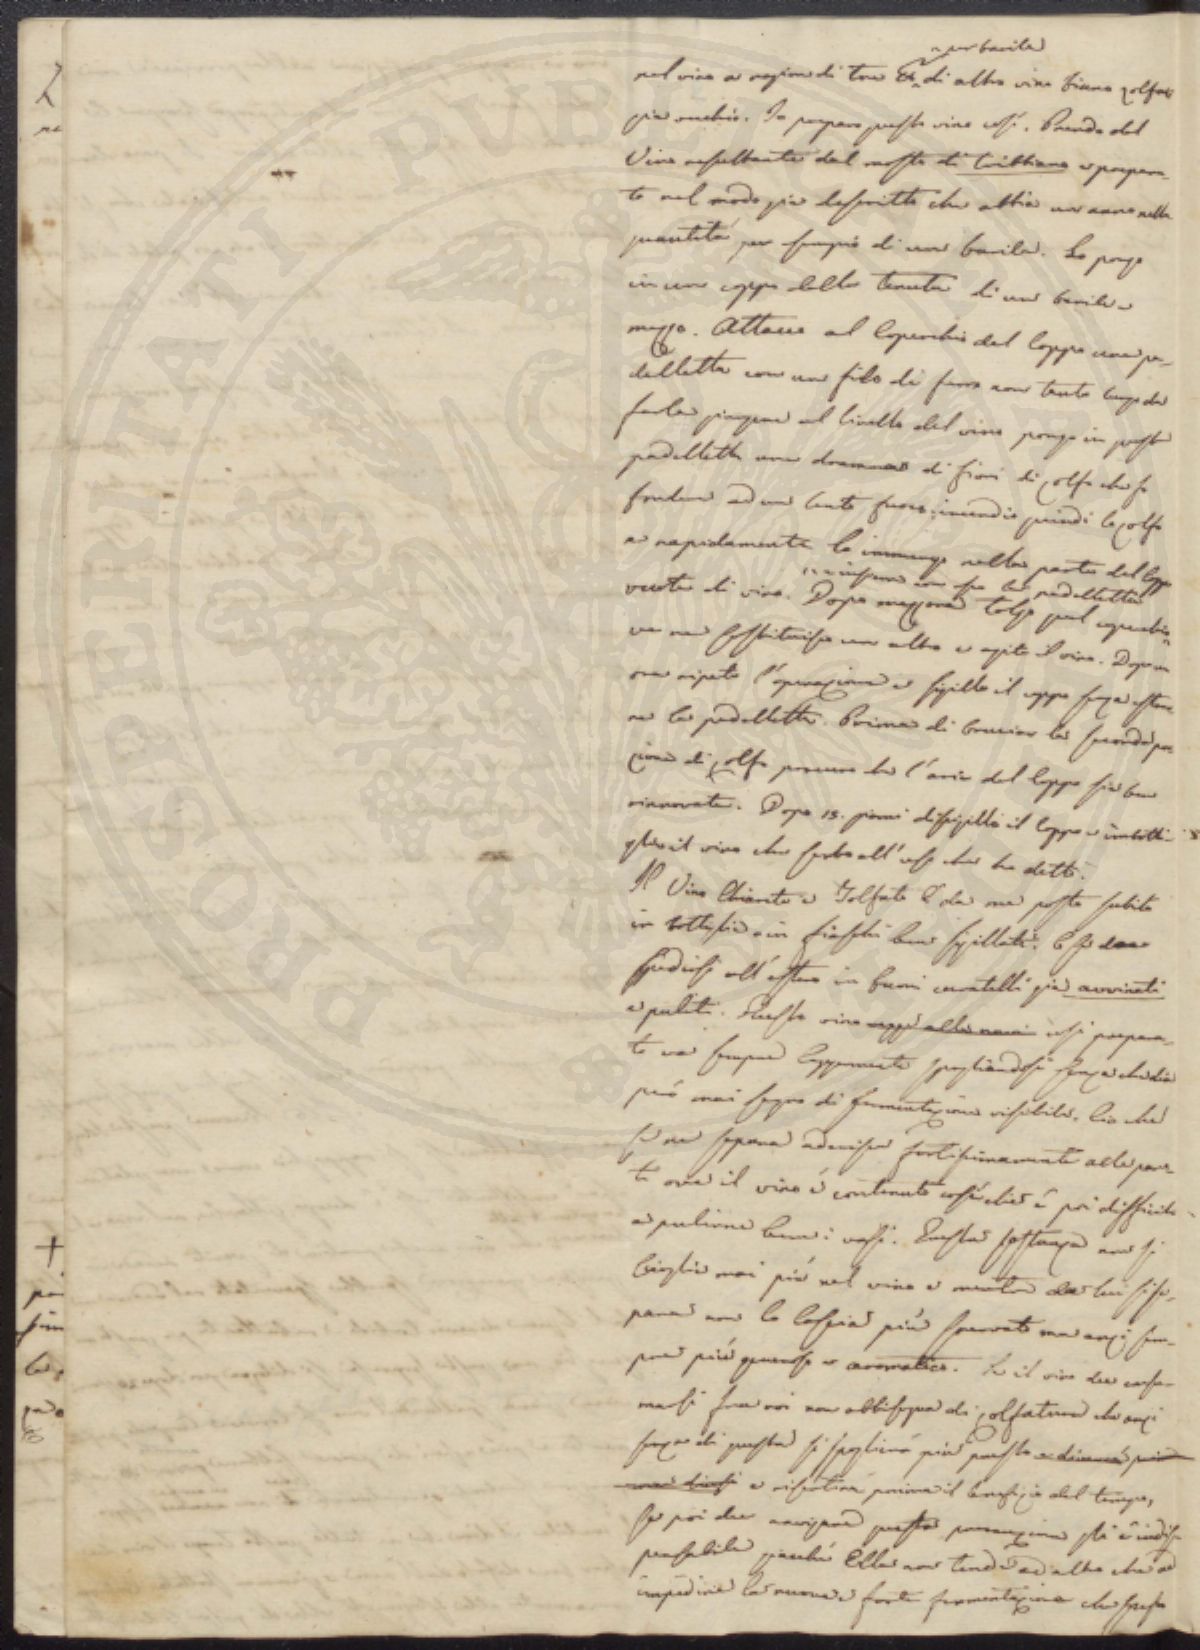 per barile
nel vino a ragione di tre di altro vino bianco zolfato
già vecchio. Io preparo questo vino così. Prendo del
Vino resultante dal mosto di tribbiano e prepara-
to nel modo già descritto che abbia un anno nella
quantità per esempio di un barile. Lo pongo
in un coppo della tenuta di un barile e
mezzo. Attacco al coperchio del coppo una pa-
delletta con un filo di ferro non tanto lungo da
farla giungere al livello del vino pongo in questa
padelletta una dramma di fiori di zolfo che fo
fondere ad un lento fuoco, incendio quindi lo zolfo
e rapidamente lo immergo nella parte del coppo
insieme con la padelletta
vuota di vino. Dopo mezzora tolgo quel coperchio
ve ne sostituisco un altro e agito il vino. Dopo un
ora ripeto l'operazione e sigillo il coppo senza estrar-
re la padelletta. Prima di bruciar la seconda por-
zione di zolfo procuro che l'aria del coppo sia ben
rinnovata. Dopo 15. giorni disigillo il coppo e imbotti-
glio il vino che serbo all'uso che ho detto.
Il Vino Chiarito e Solfato è da me posto subito
in bottiglie o in fiaschi ben sigillati. E se dee
spedirsi all'estero in buoni caratelli già avvinati
e puliti. Questo vino così prepara-
to va sempre leggermente spogliandosi senza che dia
però mai segno di fermentazione visibile. Ciò che
se ne separa aderisce fortissimamente alle pare-
ti ove il vino è contenuto cosicché è poi difficile
a pulirne bene i vasi. Questa sostanza non si
scioglie mai più nel vino e mentre da lui si se-
para non lo lascia più snervato ma anzi sem-
pre più generoso e aromatico. Se il vino dee consu-
marsi fra noi non abbisogna di zolfatura che anzi
senza di questa si spoglierà più presto e diverrà più
e risentirà prima il benefizio del tempo,
se poi dee navigare questa precauzione gli è indis-
pensabile perché Ella non tende ad altro che ad
impedire la nuova e forte fermentazione che spesso